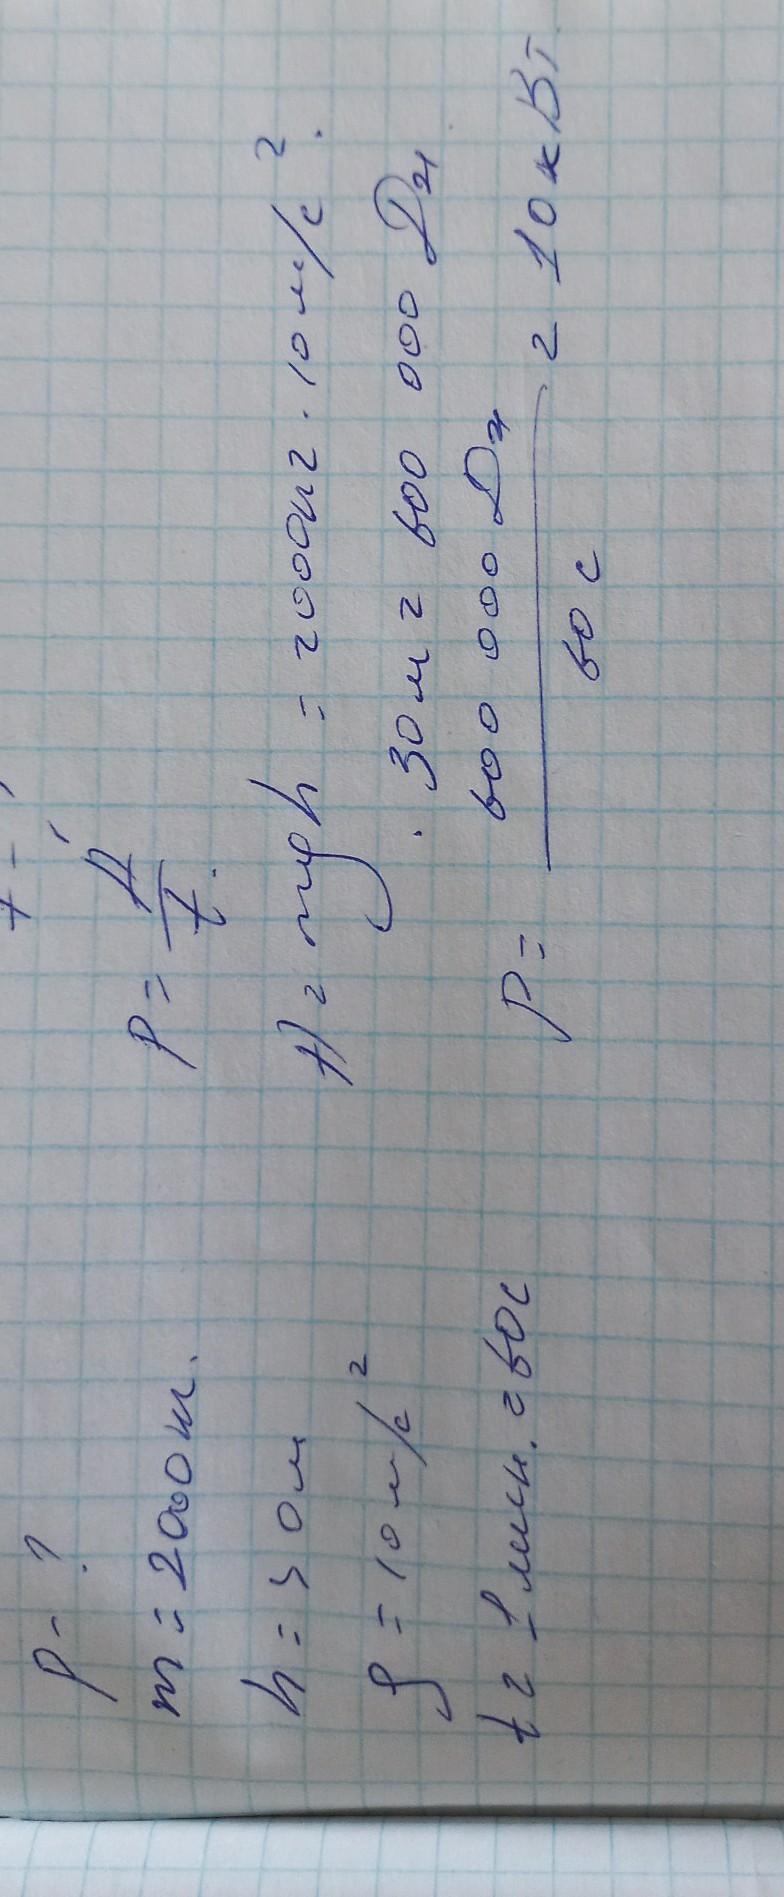 P - ?
m = 2000 кг.
h = 30 м
g = 10 м/с²
t = 1 мин. = 60с
P = A/t.
A = mgh = 2000кг · 10 м/с² ·
· 30м = 600 000 Дж
P = 600 000 Дж / 60 с = 10 кВт